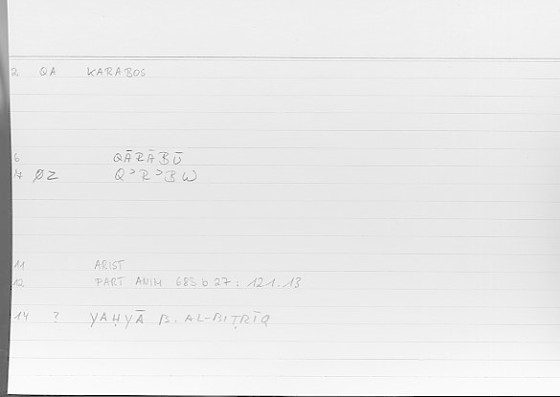 2 QA KARABOS
6 QĀRĀBŪ
7 ØZ Q᾿R᾿BW
11 ARIST
12 PART ANIM 685 b 27 : 121.13
14 ? YAḤYĀ B. AL-BIṬRĪQ